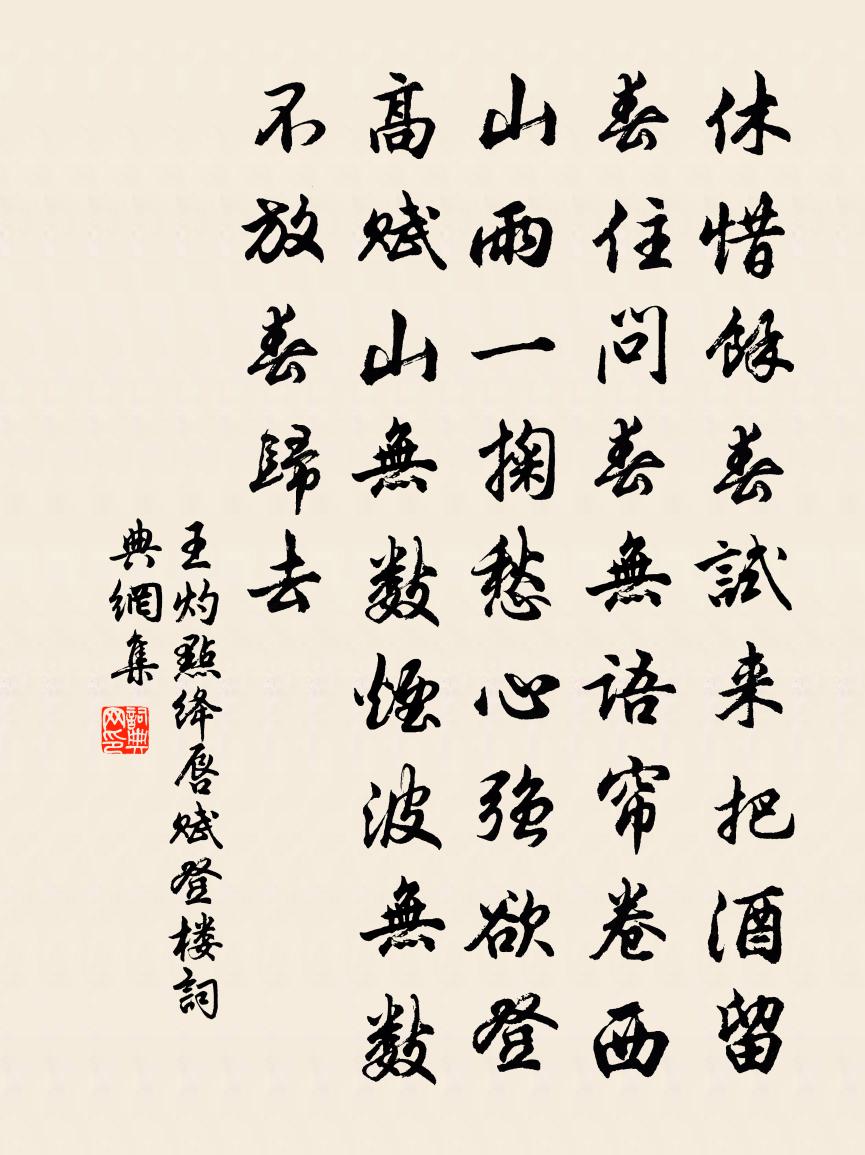 休惜餘春試来把酒留
春住問春無語帘卷西
山雨一掬愁心強欲登
高賦山無數煙波無數
不放春歸去
王灼點绛唇賦登楼詞
典網集
詞典
网印